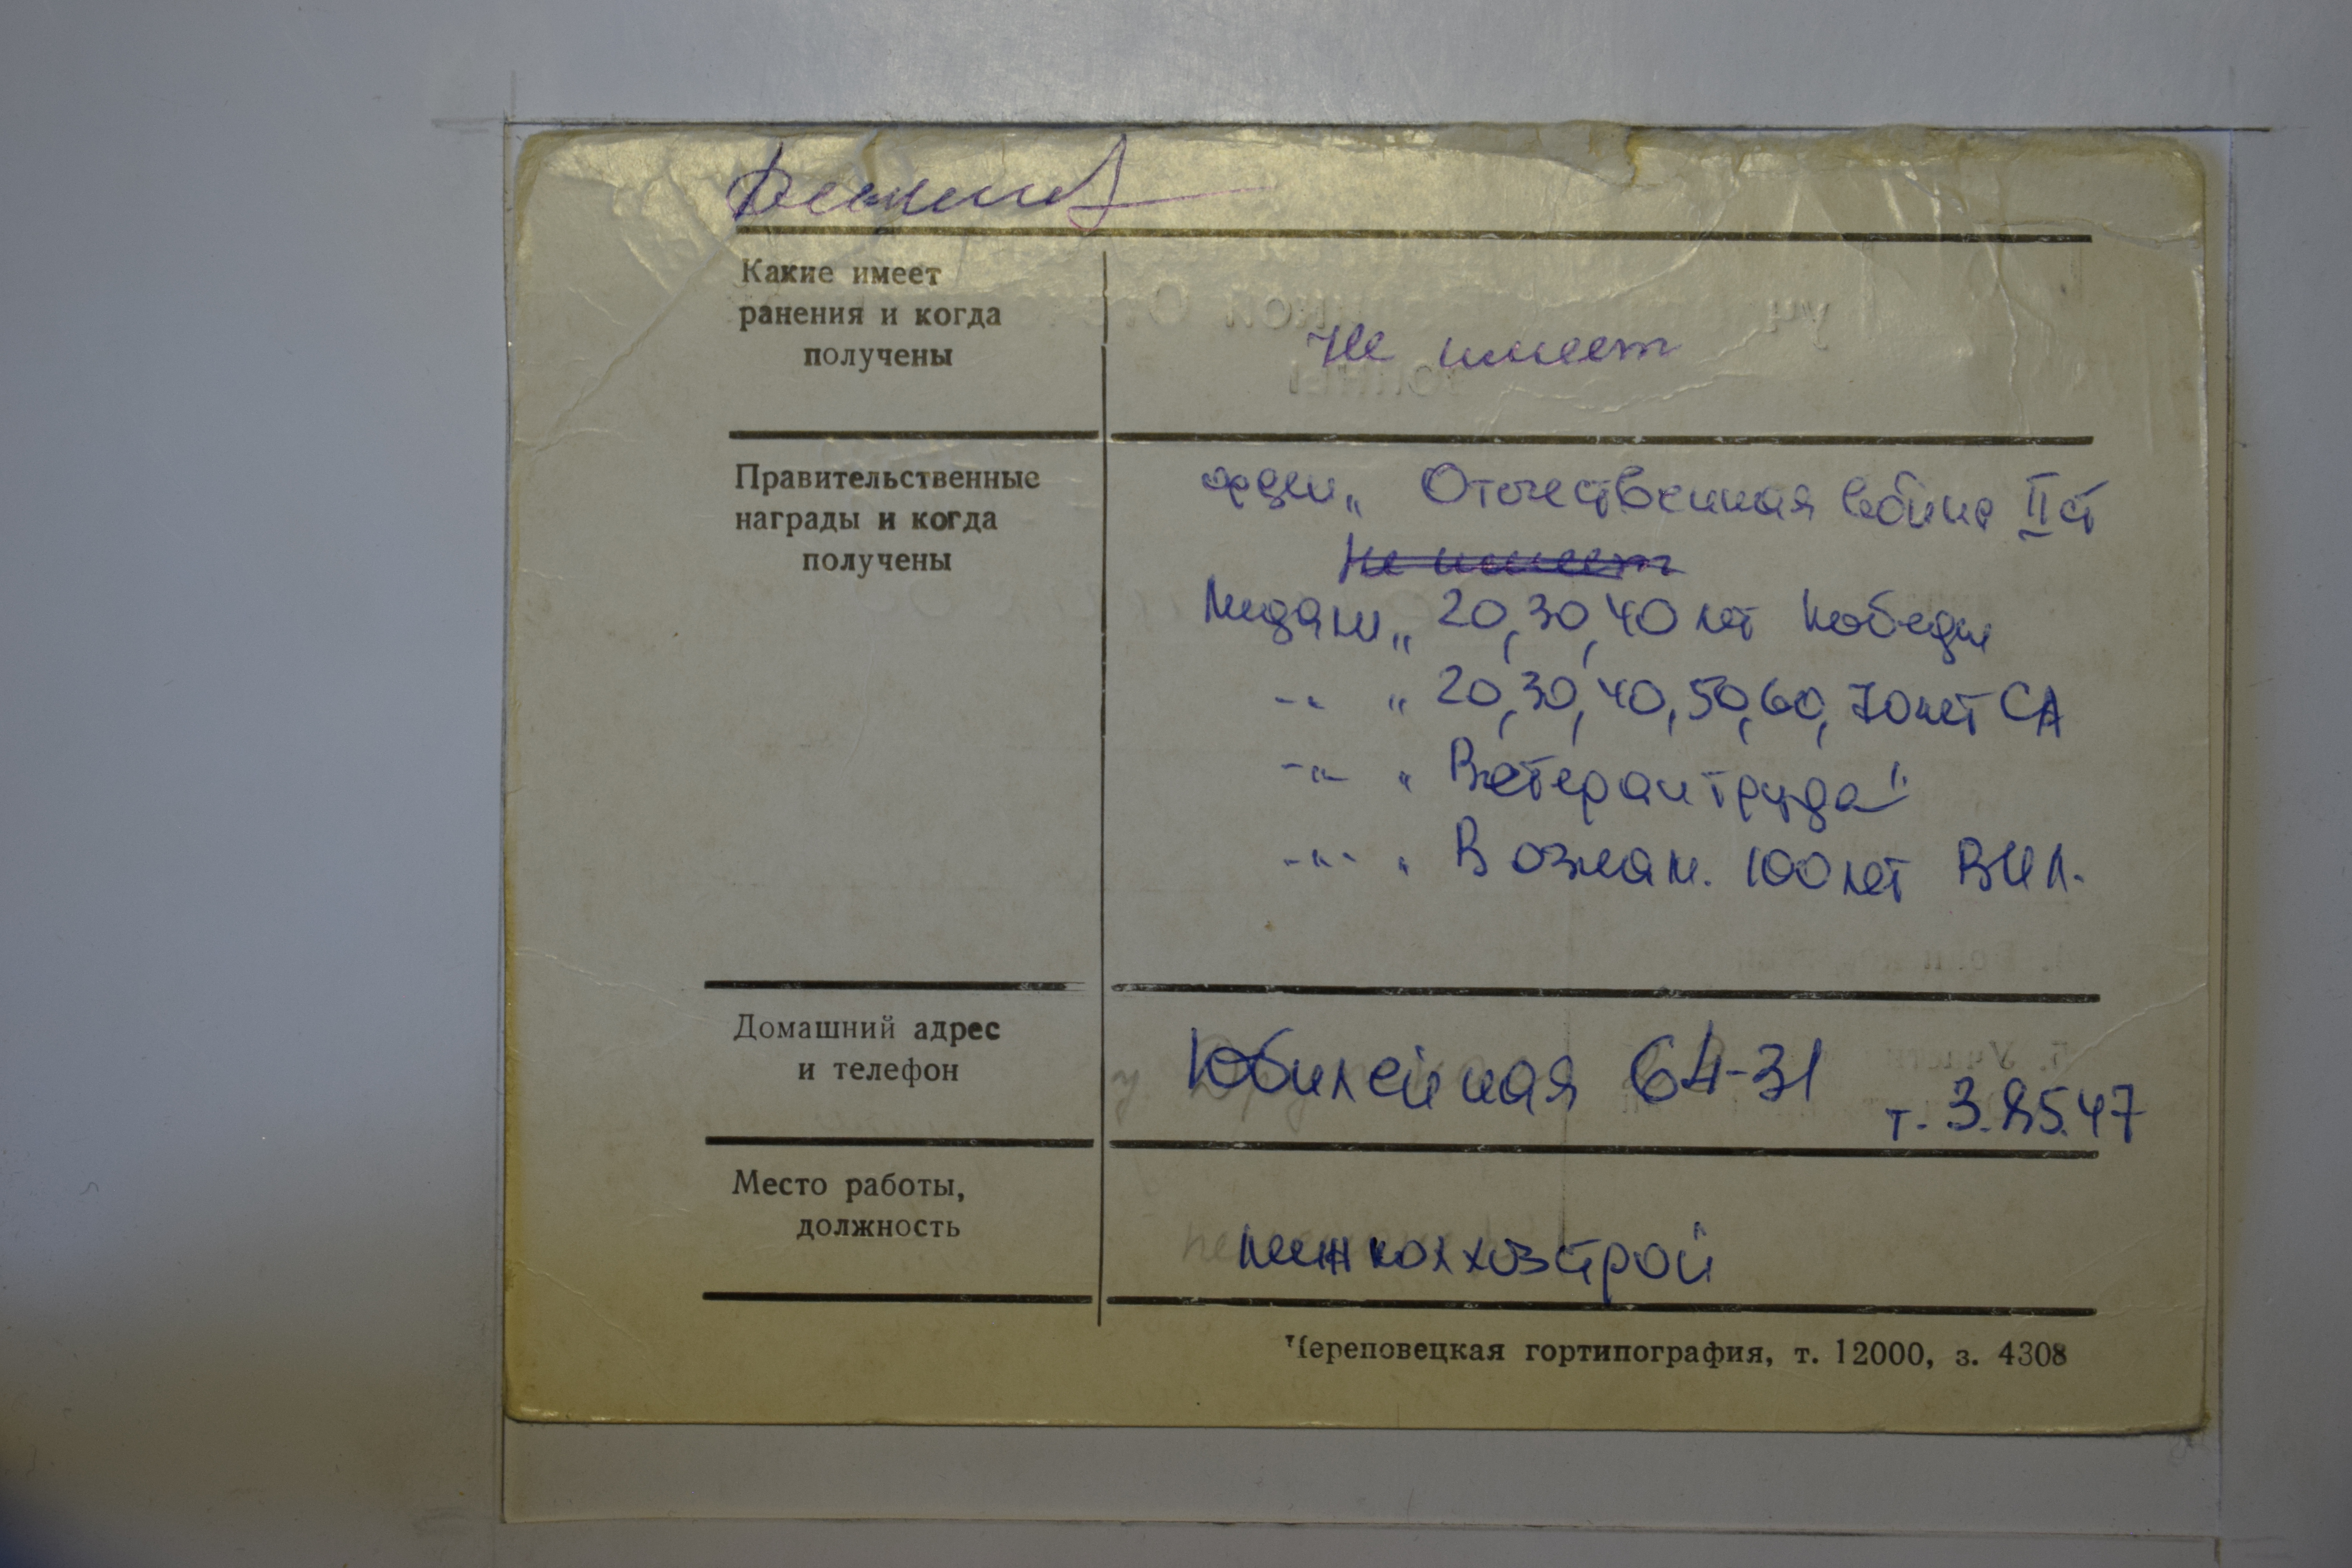 Какие имеет
ранения и когда
получены
Не имеет
Правительственные
награды и когда
получены
орден „ Отечественная война II ст
Не имеет
Медали „ 20, 30, 40 лет Победы
-"- " 20, 30, 40, 50, 60, 70 лет СА
-"- " Ветеран труда"
-"- " В ознам. 100 лет ВИЛ.
Домашний адрес
и телефон
Юбилейная 64-31
т. 3.85.47
Место работы,
должность
межколхозстрой
Череповецкая гортипография, т. 12000, з. 4308